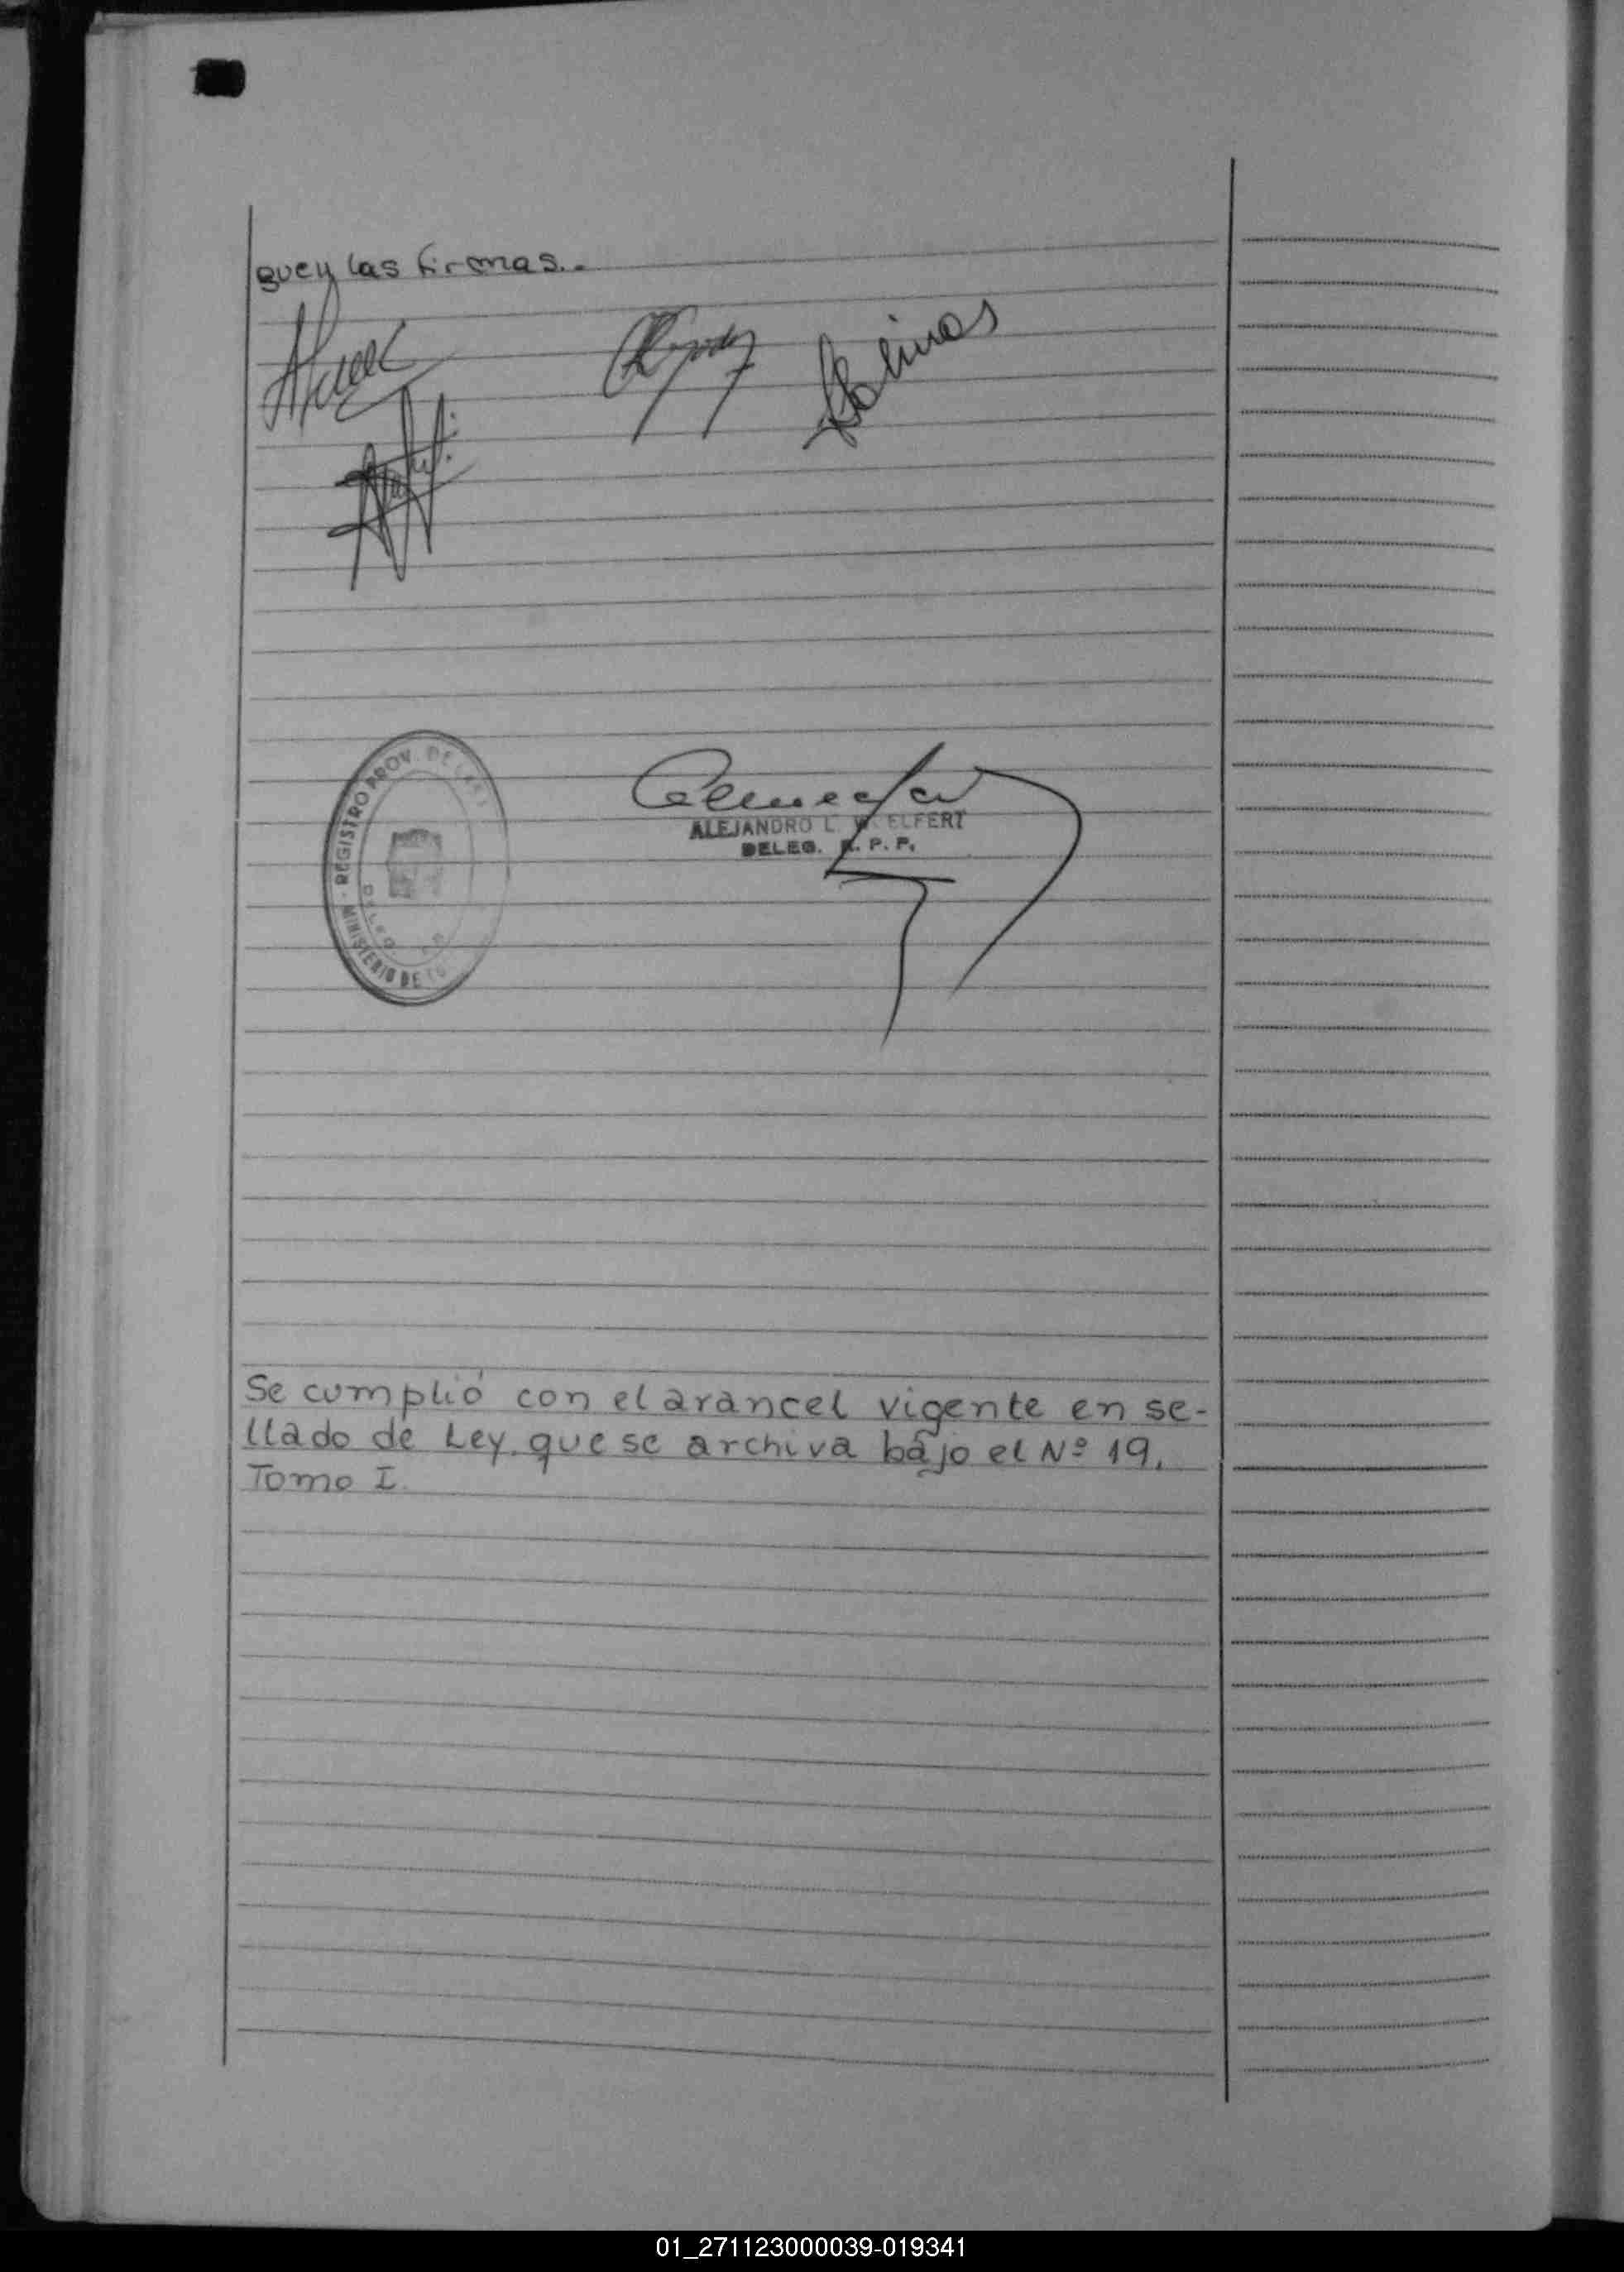 guen las firmas.-
Salinas
REGISTRO PROV. DE LAS
MINISTERIO DE
DELEG.
ALEJANDRO L. W. ELFERT
DELEG. R. P. P.
Se cumplió con el arancel vigente en se-
llado de Ley, que se archiva bajo el Nº 19,
Tomo I.
01_271123000039-019341